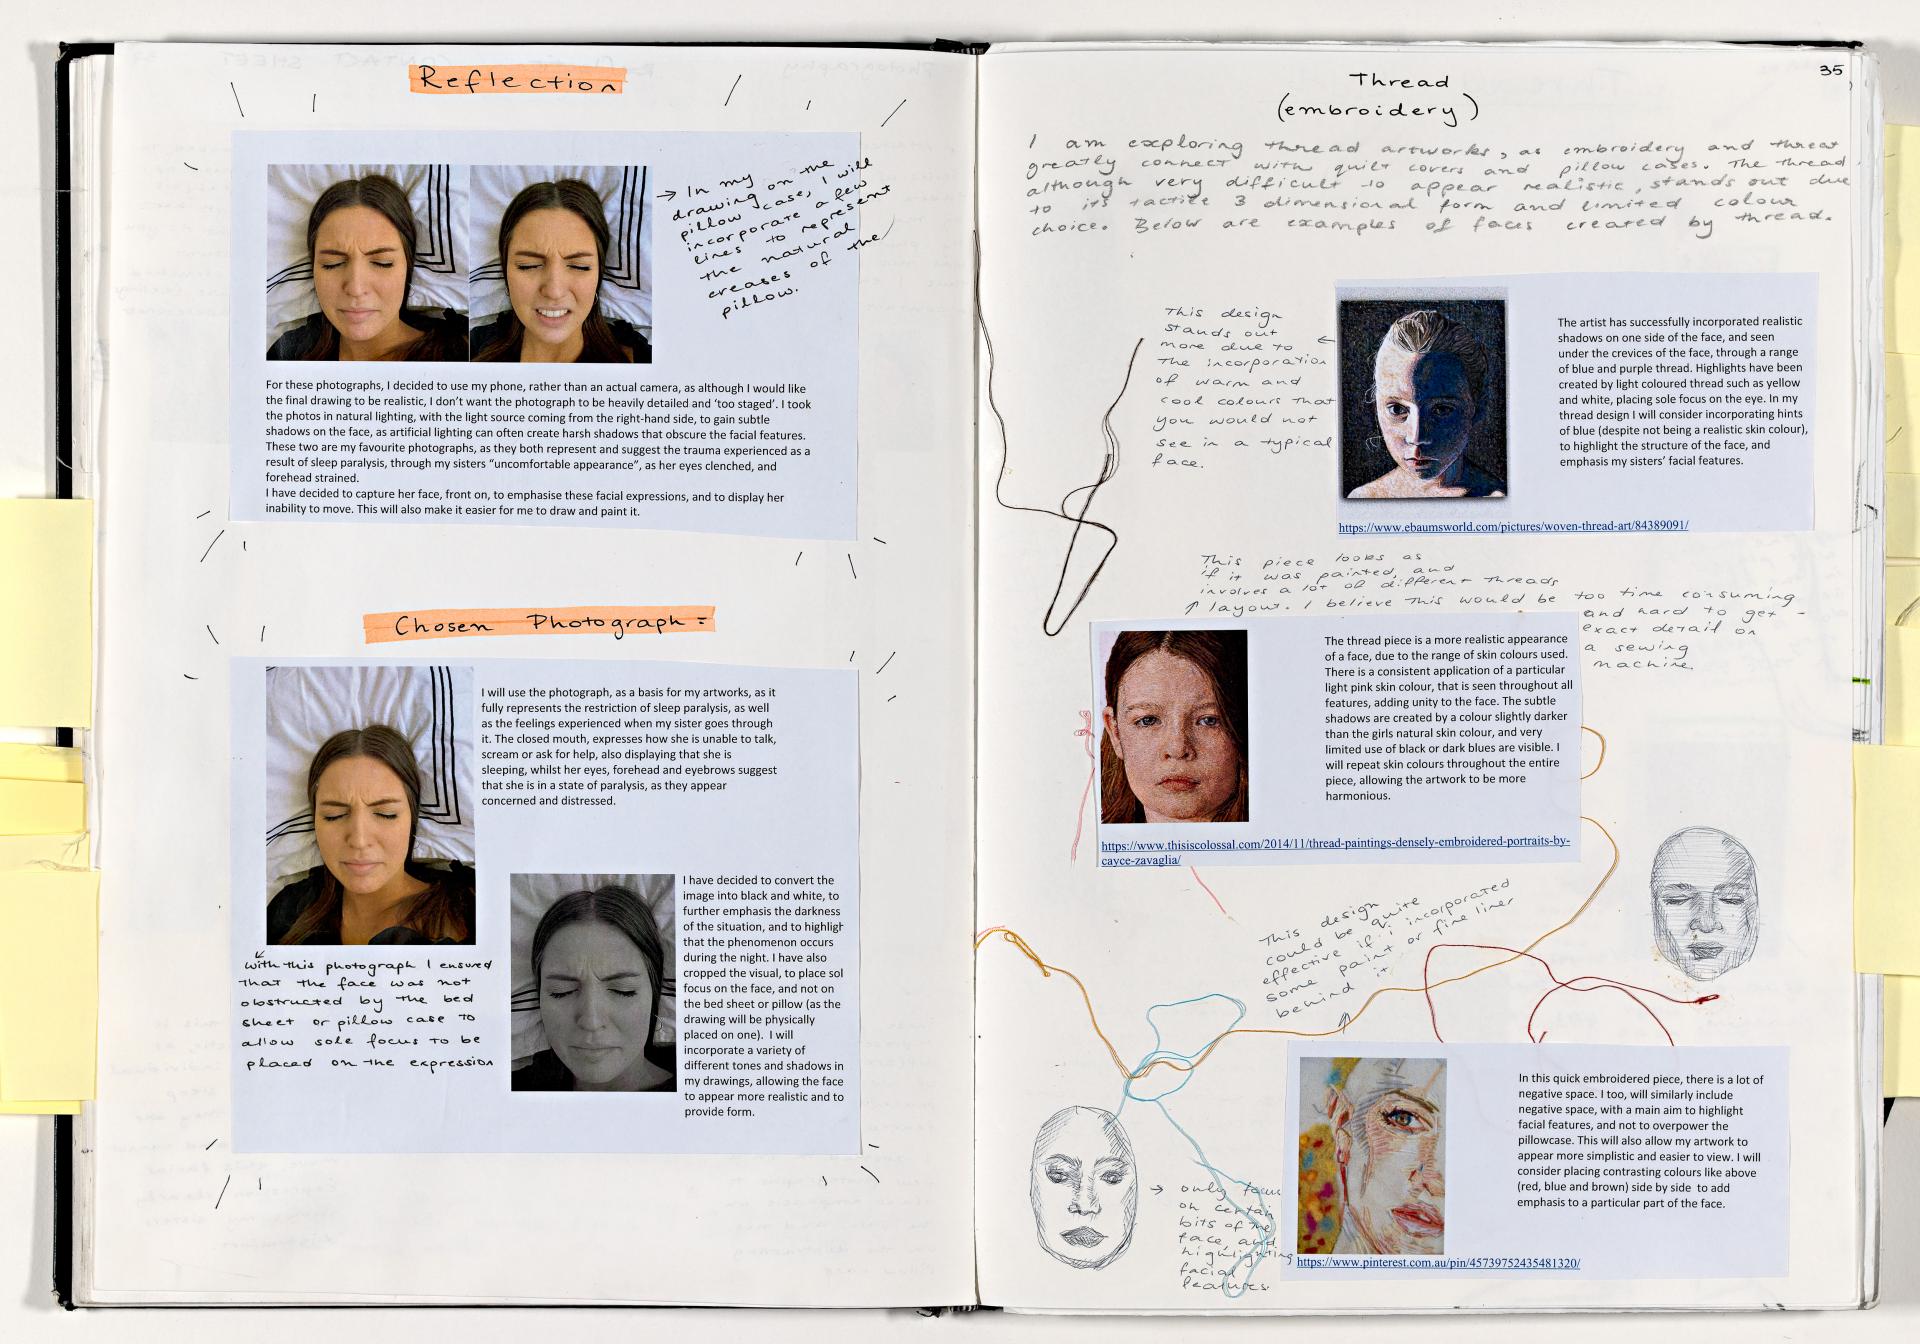 Reflection
→ In my
drawing on the
pillow case, I will
incorporate a few
lines to represent
the natural
creases of the
pillow.
For these photographs, I decided to use my phone, rather than an actual camera, as although I would like
the final drawing to be realistic, I don't want the photograph to be heavily detailed and 'too staged'. I took
the photos in natural lighting, with the light source coming from the right-hand side, to gain subtle
shadows on the face, as artificial lighting can often create harsh shadows that obscure the facial features.
These two are my favourite photographs, as they both represent and suggest the trauma experienced as a
result of sleep paralysis, through my sisters "uncomfortable appearance", as her eyes clenched, and
forehead strained.
I have decided to capture her face, front on, to emphasise these facial expressions, and to display her
inability to move. This will also make it easier for me to draw and paint it.
Chosen Photograph:
I will use the photograph, as a basis for my artworks, as it
fully represents the restriction of sleep paralysis, as well
as the feelings experienced when my sister goes through
it. The closed mouth, expresses how she is unable to talk,
scream or ask for help, also displaying that she is
sleeping, whilst her eyes, forehead and eyebrows suggest
that she is in a state of paralysis, as they appear
concerned and distressed.
with this photograph I ensured
that the face was not
obstructed by the bed
sheet or pillow case to
allow sole focus to be
placed on the expression
I have decided to convert the
image into black and white, to
further emphasis the darkness
of the situation, and to highligh
that the phenomenon occurs
during the night. I have also
cropped the visual, to place sol
focus on the face, and not on
the bed sheet or pillow (as the
drawing will be physically
placed on one). I will
incorporate a variety of
different tones and shadows in
my drawings, allowing the face
to appear more realistic and to
provide form.
35
Thread
(embroidery)
I am exploring thread artworks, as embroidery and threat
greatly connect with quilt covers and pillow cases. The thread
although very difficult to appear realistic, stands out due
to its tactile 3 dimensional form and limited colour
choice. Below are examples of faces created by thread.
This design
stands out ←
more due to
the incorporation
of warm and
cool colours that
you would not
see in a typical
face.
The artist has successfully incorporated realistic
shadows on one side of the face, and seen
under the crevices of the face, through a range
of blue and purple thread. Highlights have been
created by light coloured thread such as yellow
and white, placing sole focus on the eye. In my
thread design I will consider incorporating hints
of blue (despite not being a realistic skin colour),
to highlight the structure of the face, and
emphasis my sisters' facial features.
https://www.ebaumsworld.com/pictures/woven-thread-art/84389091/
This piece looks as
if it was painted, and
involves a lot of different threads
↑ layout. I believe this would be too time consuming
and hard to get -
exact detail on
a sewing
machine.
The thread piece is a more realistic appearance
of a face, due to the range of skin colours used.
There is a consistent application of a particular
light pink skin colour, that is seen throughout all
features, adding unity to the face. The subtle
shadows are created by a colour slightly darker
than the girls natural skin colour, and very
limited use of black or dark blues are visible. I
will repeat skin colours throughout the entire
piece, allowing the artwork to be more
harmonious.
https://www.thisiscolossal.com/2014/11/thread-paintings-densely-embroidered-portraits-by-
cayce-zavaglia/
This design
could be quite
effective if i incorporated
some paint or fine liner
behind it
In this quick embroidered piece, there is a lot of
negative space. I too, will similarly include
negative space, with a main aim to highlight
facial features, and not to overpower the
pillowcase. This will also allow my artwork to
appear more simplistic and easier to view. I will
consider placing contrasting colours like above
(red, blue and brown) side by side to add
emphasis to a particular part of the face.
https://www.pinterest.com.au/pin/45739752435481320/
→ only focus
on certain
bits of the
face and
highlighting
facial
features.